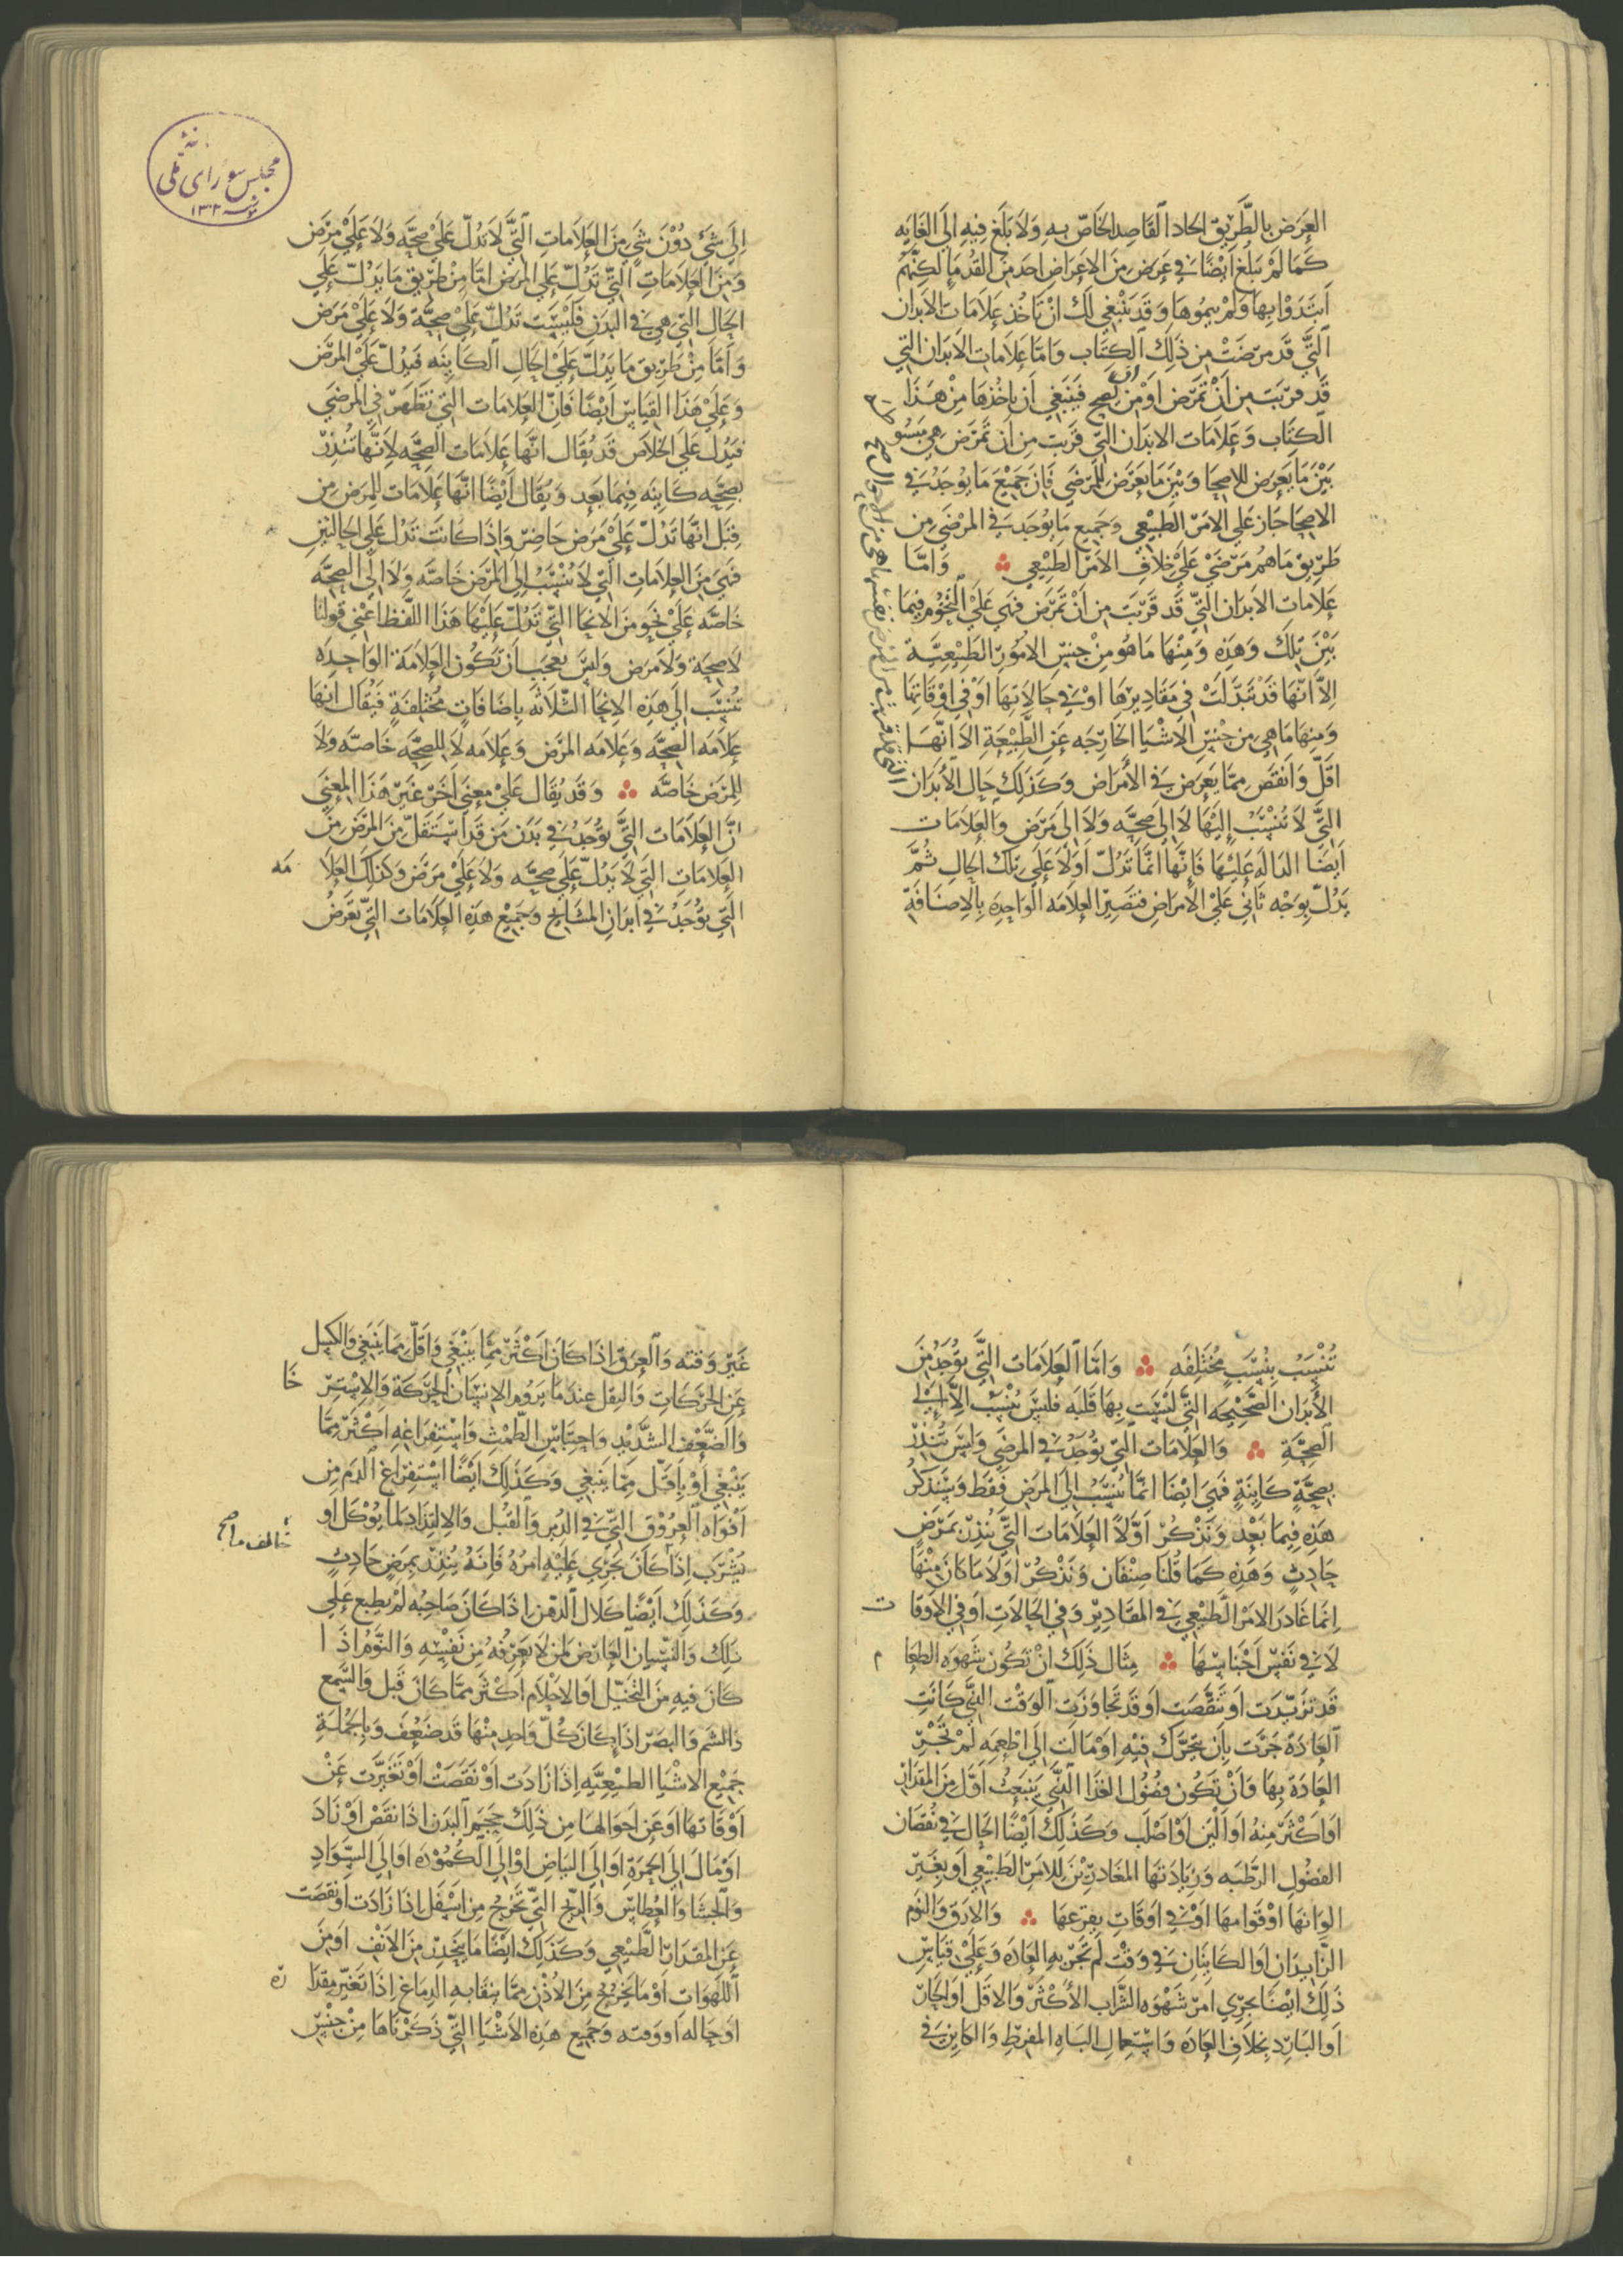 العرض بالطريق الحاد القاصد الخاص به ولا بلغ فيه الى الغايه
كما لم يبلغ ايضا في عرض من الاعراض احد من القدما لكنهم
ابتدوا بها ولم يتموها وقد ينبغي لك ان تاخذ علامات الابدان
التي قد مرضت من ذلك الكتاب واما علامات الابدان التي
قد قربت من ان تمرض او من ان تصح فينبغي ان ناخذها من هذا
الكتاب وعلامات الابدان التي قربت من ان تمرض هي
بين ما يعرض للاصحا وبين ما يعرض للمرضى فان جميع ما يوجد في
الاصحا جاز على الامر الطبيعي وجميع ما يوجد في المرضى من
طريق ما هم مرضى على خلاف الامر الطبيعي واما
علامات الابدان التي قد قربت من ان تمرض فهي على النحو فيما
بين تلك وهذه ومنها ما هو من جنس الامور الطبيعية
الا انها قد تبدلت في مقاديرها او في حالاتها او في اوقاتها
ومنها ما هي من جنس الاشيا الخارجه عن الطبيعة الا انها
اقل وانقص مما يعرض في الامراض وكذلك حال الابدان
التي لا تنسب إليها لا الى صحه ولا الى مرض والعلامات
ايضا الداله عليها فانها انما تدل اولا على تلك الحال ثم
يدل بوجه ثاني على الامراض فتصير العلامه الواحده بالاضافة
مجلس شورای ملی
١٣٠٢
الى شي دون شي من العلامات التي لا تدل على صحه ولا على مرض
ومن العلامات التي تدل على المرض اما من طريق ما يدل على
الحال التي هي في البدن فليست تدل على صحة ولا على مرض
واما من طريق ما يدل على الحال الكاينه فيدل على المرض
وعلى هذا القياس ايضا فان العلامات التي تظهر في المرضى
فيدل على الخلاص قد يقال انها علامات الصحه لانها تنذر
بصحه كاينه فيما بعد ويقال ايضا انها علامات للمرض من
قبل انها تدل على مرض حاضر واذا كانت تدل على الحالتين
فهي من العلامات التي لا تنسب الى المرض خاصه ولا الى الصحه
خاصه على نحو من الانحا التي تدل عليها هذا اللفظ اعني قولنا
لا صحة ولا مرض وليس بعجب ان تكون العلامة الواحده
تنسب الى هذه الانحا الثلاثه باضافات مختلفة فيقال انها
علامه الصحه وعلامه المرض وعلامه لا للصحه خاصه ولا
للمرض خاصه وقد يقال على معنى اخر غير هذا المعنى
ان العلامات التي توجد في بدن من قد استقل من المرض من
العلامات التي لا يدل على صحه ولا على مرض وكذلك العلا مه
التي توجد في ابدان المشايخ وجميع هذه العلامات التي تعرض
تنسب بنسب مختلفه واما العلامات التي توجد من
الأبدان الصحيحه التي ليست بها قلبه فليس ينسب الا الى
الصحة والعلامات التي توجد في المرضى وليس تنذر
بصحة كاينة فهي ايضا انما تنسب الى المرض فقط وسنذكر
هذه فيما بعد ونذكر أولا العلامات التي ينذر بمرض
حادث وهذه كما قلنا صنفان ونذكر اولا ما كان منها
انما غادر الامر الطبيعي في المقادير وفي الحالات او في الاوقا ت
لا في نفس اجناسها مثال ذلك ان تكون شهوه الطعا م
قد تزيدت او تنقصت او قد تجاوزت الوقت التي كانت
العادة جرت بان يتحرك فيه او مالت الى اطعمه لم تجر
العادة بها وان تكون فضول الغذا التي ينبعث اقل من المقدار
او اكثر منه او الين او اصلب وكذلك ايضا الحال في نقصان
الفضول الرطبه وزيادتها المغادرتين للامر الطبيعي او بغير
الوانها او قوامها او في اوقات بفرعها والارق والنوم
الزايدان او الكاينان في وقت لم تجر به العاده وعلى قياس
ذلك ايضا يجري امر شهوه الشراب الأكثر والاقل او الحار
او البارد بخلاف العاده واستعمال الباه المفرط والكاين في
غير وقته والعرق اذا كان اكثر مما ينبغي واقل مما ينبغي والكسل
عن الحركات والثقل عندما يروم الانسان الحركة والاستر خا
والضعف الشديد واحتباس الطمث واستفراغه اكثر مما
ينبغي او باقل مما ينبغي وكذلك ايضا استفراغ الدم من
افواه العروق التي في الدبر والقبل والالتذاذ لما يوكل او
يشرب اذا كان يجري عليه امره فانه ينذر بمرض حادث
وكذلك ايضا كلال الذهن اذا كان صاحبه لم يطبع على
ذلك والنسيان العارض لمن لا يعرفه من نفسه والنوم اذ ا
كان فيه من التخيل او الاحلام اكثر مما كان قبل والسمع
والشم والبصر اذا كان كل واحد منها قد ضعف وبالجملة
جميع الاشيا الطبيعيه اذا زادت او نقصت او تغيرت عن
اوقاتها او عن احوالها من ذلك حجم البدن اذا نقص او زاد
او مال الى الحمرة او الى البياض او الى الكمودة او الى السواد
والجشا والعطاس والريح التي تخرج من اسفل اذا زادت او نقصت
عن المقدار الطبيعي وكذلك ايضا ما يتحدر من الانف او من
اللهوات او ما يخرج من الاذن مما ينقا به الدماغ اذا تغير مقدا ره
او حاله او وقته وجميع هذه الاشيا التي ذكرناها من جنس